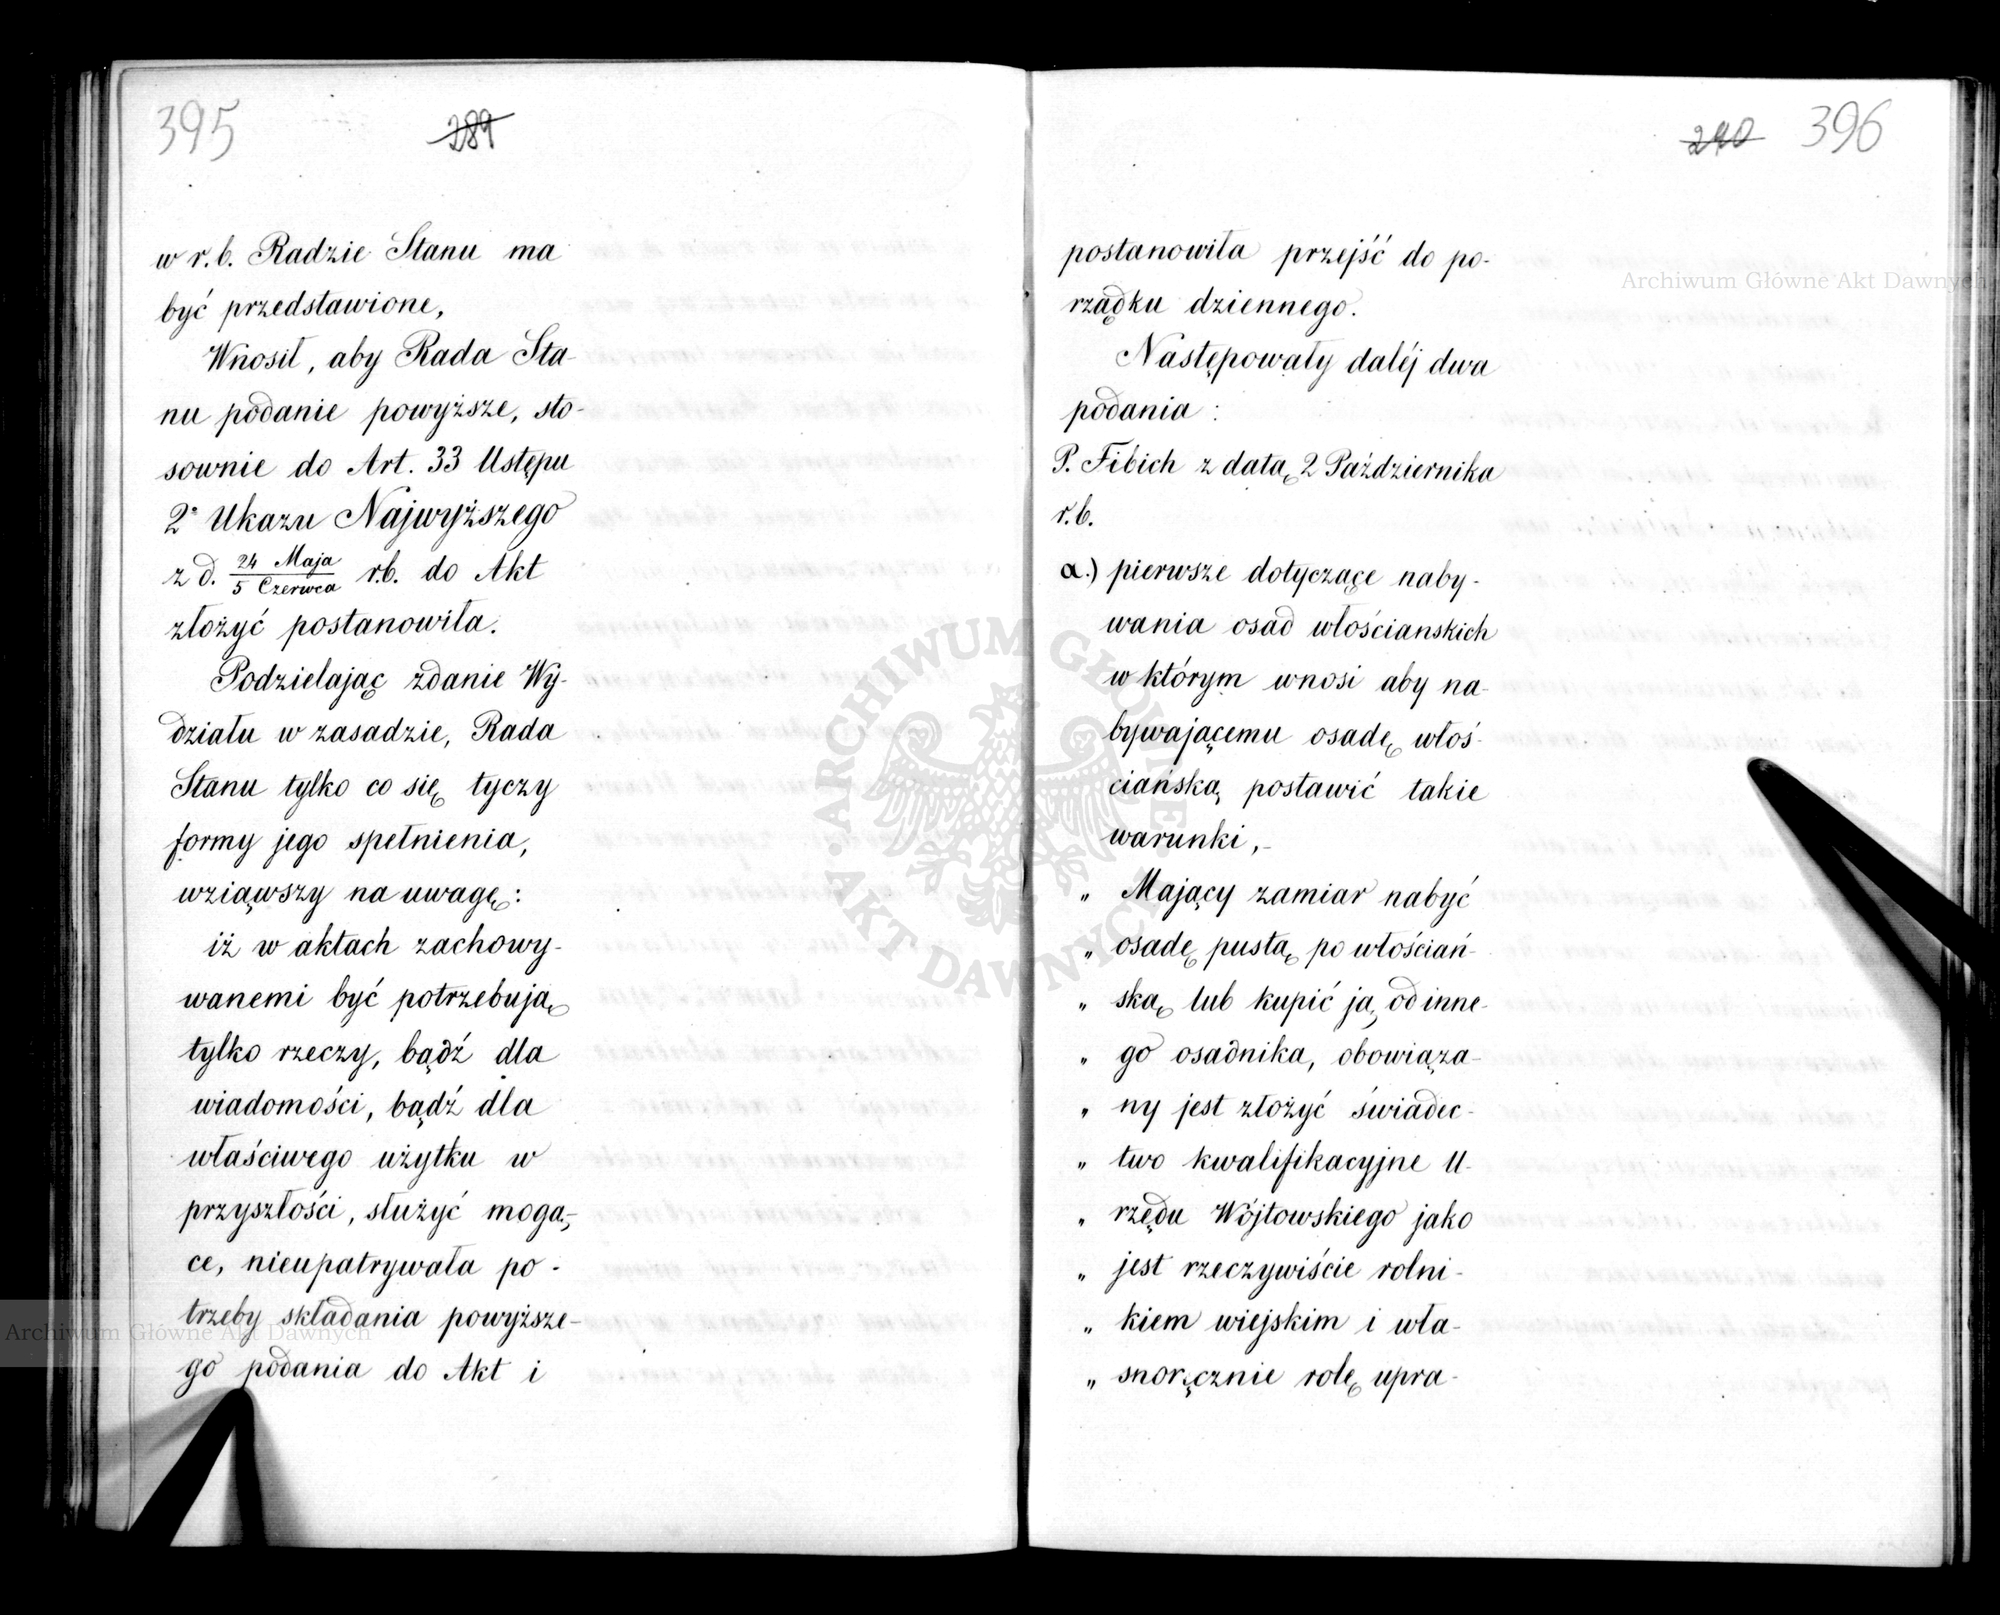 395
289
w r. b. Radzie Stanu ma
być przedstawione,
Wnosił, aby Rada Sta-
nu podanie powyższe, sto-
sownie do Art. 33 Ustępu
2° Ukazu Najwyższego
z d. 24 Maja / 5 Czerwca r.b. do Akt
złożyć postanowiła.
Podzielając zdanie Wy-
działu w zasadzie, Rada
Stanu tylko co się tyczy
formy jego spełnienia,
wziąwszy na uwagę:
iż w aktach zachowy-
wanemi być potrzebują
tylko rzeczy, bądź dla
wiadomości, bądź dla
właściwego użytku w
przyszłości, służyć mogą-
ce, nieupatrywała po-
trzeby składania powyższe-
go podania do Akt i
290
396
postanowiła przejść do po-
rządku dziennego.
Następowały daléj dwa
podania:
P. Fibich z datą 2 Października
r.b.
a.) pierwsze dotyczące naby-
wania osad włościanskich
w którym wnosi aby na-
bywającemu osadę włoś-
ciańską postawić takie
warunki,-
„ Mający zamiar nabyć
„ osadę pustą po włościań-
„ ską lub kupić ją od inne-
„ go osadnika, obowiąza-
„ ny jest złożyć świadec-
„ two kwalifikacyjne U-
„ rzędu Wójtowskiego jako
„ jest rzeczywiście rolni-
„ kiem wiejskim i wła-
„ snoręcznie rolę upra-
ARCHIWUM GŁÓWNE AKT DAWNYCH
Archiwum Główne Akt Dawnych
Archiwum Główne Akt Dawnych